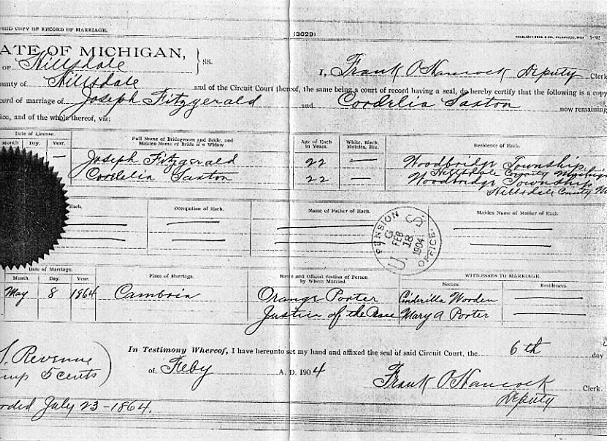 COPY OF RECORD OF MARRIAGE.
(3029)
ATE OF MICHIGAN,
OF Hillsdale } SS.
I, Frank O Hancock Deputy Clerk
ounty of Hillsdale and of the Circuit Court thereof, the same being a court of record having a seal, do hereby certify that the following is a copy
ord of marriage of Joseph Fitzgerald and Cordelia Saxton now remaining
ice, and of the whole thereof, viz:
Date of License.
Month Day. Year.
Full Name of Bridegroom and Bride, and Maiden Name of Bride if a Widow
Age of Each in Years.
White, Black, Mulatto, Etc.
Residence of Each.
— Joseph Fitzgerald 22 — Woodbridge Township
Hillsdale County Michigan
— Cordelia Saxton 22 — Woodbridge Township
Hillsdale County M
Each.
Occupation of Each.
Name of Father of Each.
Maiden Name of Mother of Each.
U S PENSION OFFICE
FEB
18
1904
Date of Marriage.
Month Day. Year.
Place of Marriage.
Name and Official Station of Person by Whom Married
WITNESSES TO MARRIAGE.
Names.
Residences.
May 8 1864 Cambria Orange Porter Cinderilla Wooden
Justice of the Peace Mary A Porter
S. Revenue
mp 5 cents)
In Testimony Whereof, I have hereunto set my hand and affixed the seal of said Circuit Court, the 6th day
of Feby A. D. 1904
Frank O Hancock Clerk.
Deputy
orded July 23-1864.